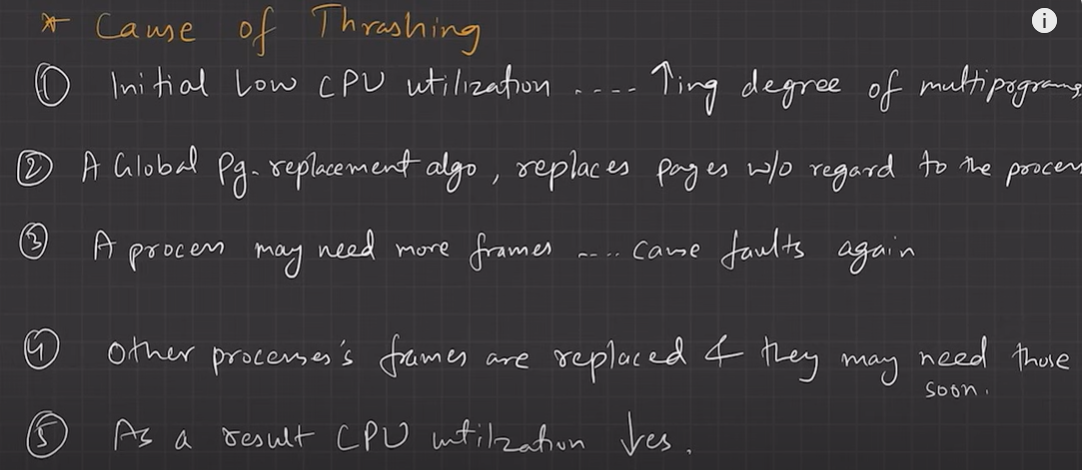 * Cause of Thrashing
① Initial Low CPU utilization .... ↑ing degree of multiprograms
② A Global Pg. replacement algo, replaces pages w/o regard to the process
③ A process may need more frames .... cause faults again
④ Other processes's frames are replaced & they may need those
soon.
⑤ As a result CPU utilization ↓es.